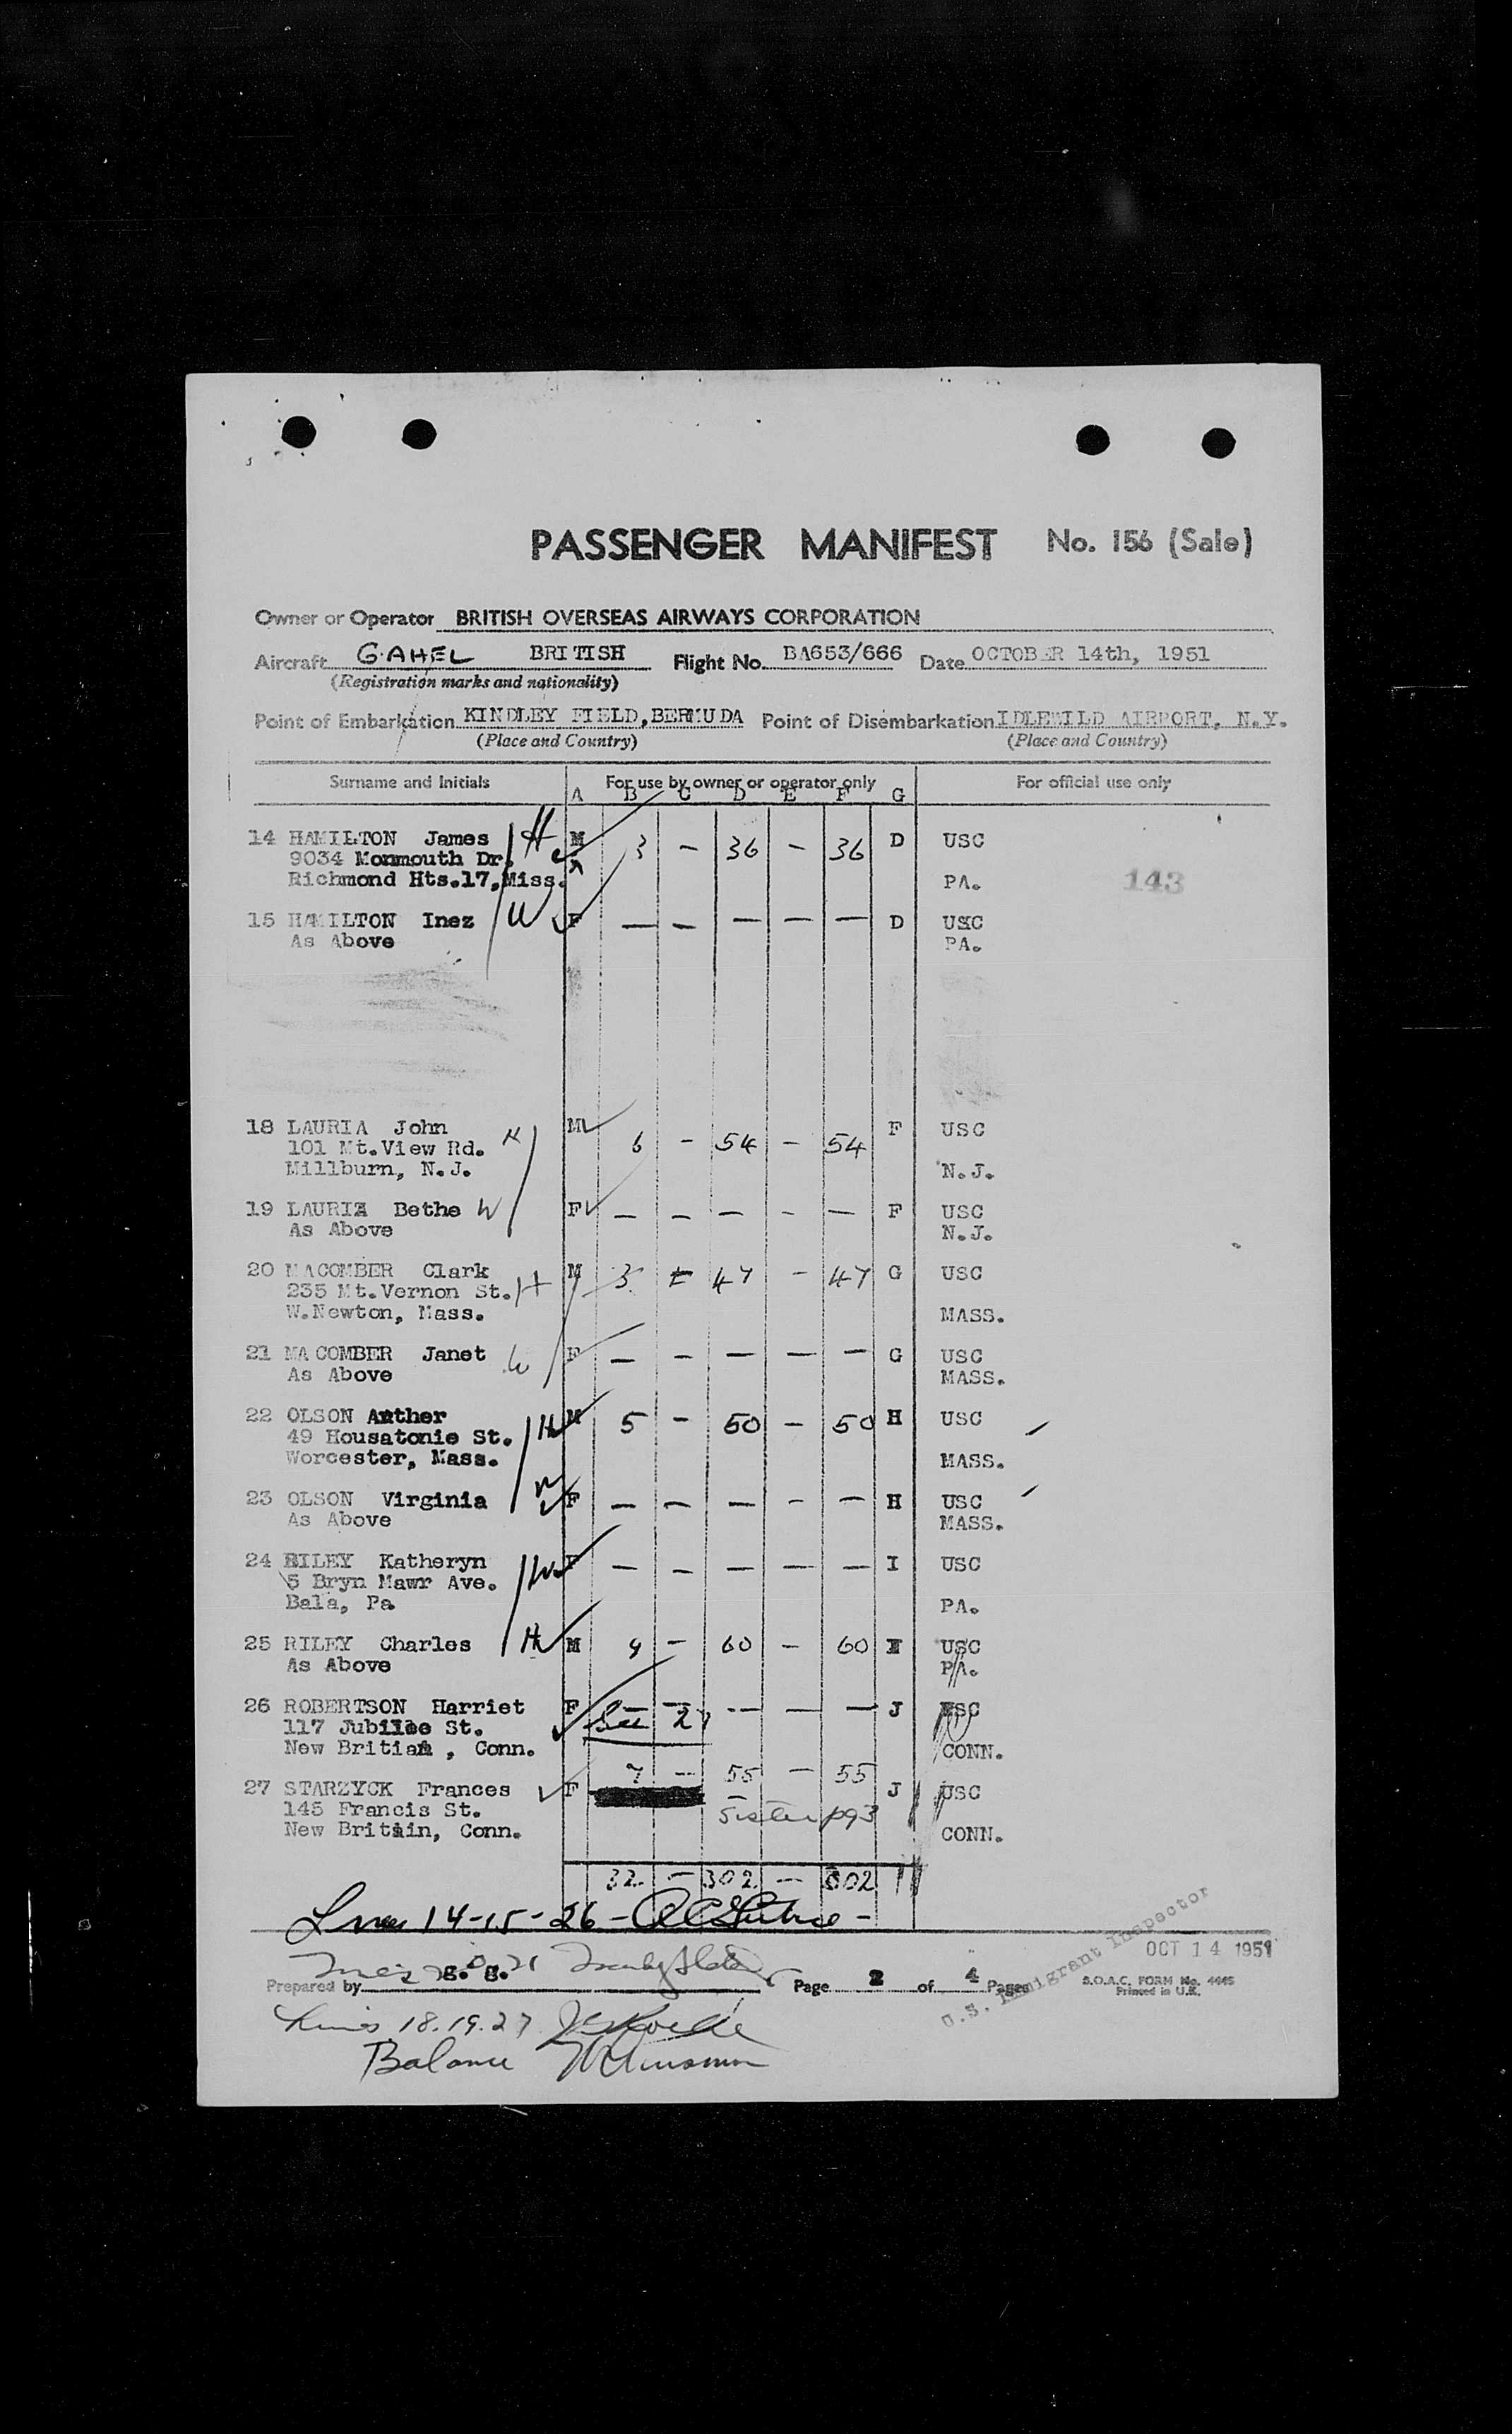 PASSENGER MANIFEST No. 156 (Sale)
Owner or Operator BRITISH OVERSEAS AIRWAYS CORPORATION
Aircraft G.AHEL BRITISH Flight No. BA653/666 Date OCTOBER 14th, 1951
(Registration marks and nationality)
Point of Embarkation KINDLEY FIELD, BERMUDA Point of Disembarkation IDLEWILD AIRPORT, N.Y.
(Place and Country) (Place and Country)
Surname and Initials For use by owner or operator only For official use only
A B C D E F G
14 HAMILTON James H M 3 - 36 - 36 D USC
9034 Monmouth Dr.
Richmond Hts.17,Miss. PA. 143
15 HAMILTON Inez W F - - - - - D USC
As Above PA.
18 LAURIA John H M 6 - 54 - 54 F USC
101 Mt.View Rd.
Millburn, N.J. N.J.
19 LAURIA Bethe W F - - - - - F USC
As Above N.J.
20 MACOMBER Clark H M 3 - 47 - 47 G USC
235 Mt.Vernon St.
W.Newton, Mass. MASS.
21 MACOMBER Janet W F - - - - - G USC
As Above MASS.
22 OLSON Anther H M 5 - 50 - 50 H USC
49 Housatonie St.
Worcester, Mass. MASS.
23 OLSON Virginia W F - - - - - H USC
As Above MASS.
24 RILEY Katheryn W F - - - - - I USC
5 Bryn Mawr Ave.
Bala, Pa PA.
25 RILEY Charles H M 9 - 60 - 60 I USC
As Above PA.
26 ROBERTSON Harriet F - - - - - J USC
117 Jubilee St. See 27
New Britian , Conn. CONN.
7 - 55 - 55
27 STARZYCK Frances F J USC
145 Francis St. Sister pg3
New Britain, Conn. CONN.
32 - 302 - 302
Lines 14-15-26-
OCT 14 1951
U.S. Immigrant Inspector
Prepared by g. g. Page 2 of 4 Pages B.O.A.C. FORM No. 4445
Printed in U.K.
Lines 18.19.27
Balance